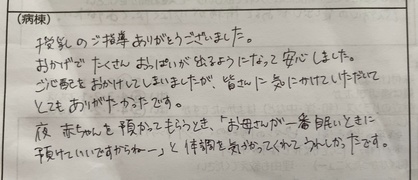 (病棟)
授乳のご指導ありがとうございました。
おかげで たくさん おっぱいが 出るようになって 安心しました。
ご心配をおかけしてしまいましたが、皆さんに 気にかけていただいて
とてもありがたかったです。
夜 赤ちゃんを 預かってもらうとき、「お母さんが一番眠いときに
預けていいですからねー」と 体調を 気づかってくれて うれしかったです。